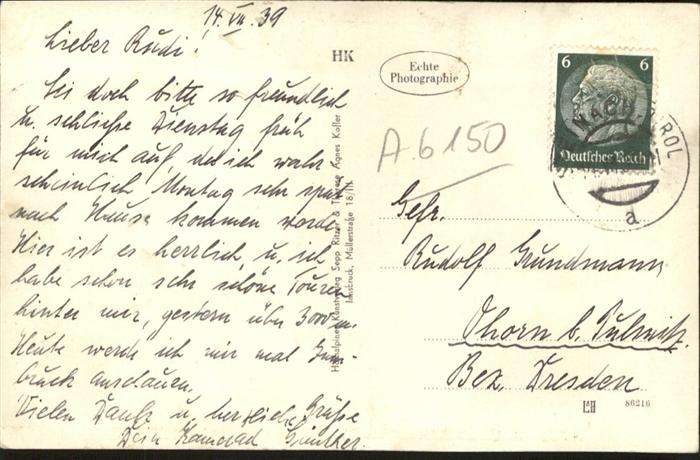 14. VII. 39
Lieber Rudi!
Sei doch bitte so freundlich
u. schließe Dienstag früh
für mich auf, da ich wahr
scheinlich Montag sehr spät
nach Hause kommen werde.
Hier ist es herrlich u. ich
habe schon sehr schöne Touren
hinter mir, gestern über 3000 m.
Heute werde ich mir mal Inns-
bruck anschauen.
Vielen Dank u. herzliche Grüße
Dein Kamerad Günther.
HK
Echte
Photographie
Hochalpiner Kunstverlag Sepp Ritzer & Therese Agnes Koller
Innsbruck, Müllerstraße 18/III
A 6150
6 6
Deutsches Reich
a
Gefr.
Rudolf Grundmann
Ohorn b. Pulsnitz
Bez. Dresden
86216